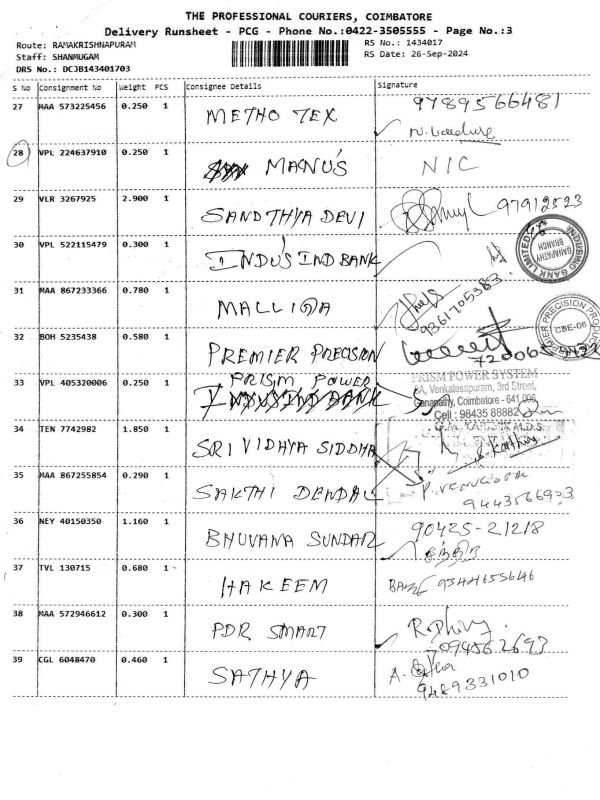 THE PROFESSIONAL COURIERS, COIMBATORE
Delivery Runsheet - PCG - Phone No.:0422-3505555 - Page No.:3
Route: RAMAKRISHNAPURAM
RS No.: 1434017
Staff: SHANMUGAM
RS Date: 26-Sep-2024
DRS No.: DCJB143401703
S No Consignment No Weight PCS Consignee Details Signature
27 MAA 573225456 0.250 1 METHO TEX 9789566481
28 VPL 224637910 0.250 1 MANU'S NIC
29 VLR 3267925 2.900 1 SANDTHYA DEVI 97912523
30 VPL 522115479 0.300 1 INDUSIND BANK
INDUSIND BANK LIMITED
GANAPATHY
BRANCH
31 MAA 867233366 0.780 1 MALLIGA
9361705383
32 BOH 5235438 0.580 1 PREMIER PRECISION
PREMIER PRECISION PRODU
CBE-06
33 VPL 405320006 0.250 1 PRISM POWER
INDUSIND BANK
PRISM POWER SYSTEM
Venkatesapuram, 3rd Street,
Ganapathy, Coimbatore - 641 006
Cell : 98435 88882
34 TEN 7742982 1.850 1 SRI VIDHYA SIDDHA
35 MAA 867255854 0.290 1 SAKTHI DENDAL
36 NEY 40150350 1.160 1 BHUVANA SUNDAR 90425-21218
37 TVL 130715 0.680 1 HAKEEM 9344655646
38 MAA 572946612 0.300 1 PDR SMART
39 CGL 6048470 0.460 1 SATHYA
9489331010